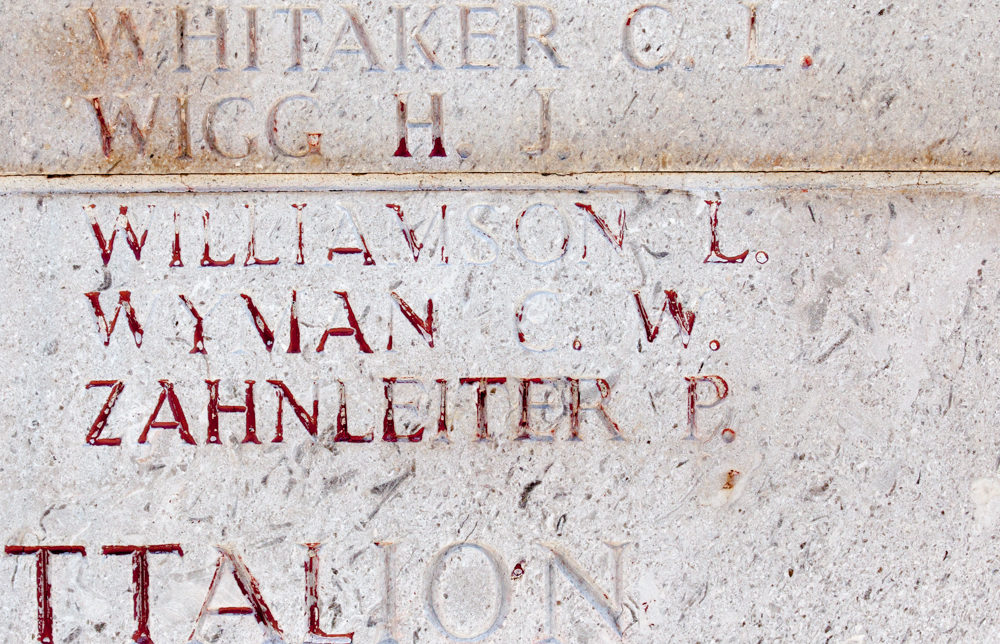 WHITAKER C. L.
WIGG H. J.
WILLIAMSON L.
WYMAN C. W.
ZAHNLEITER P.
TTALION